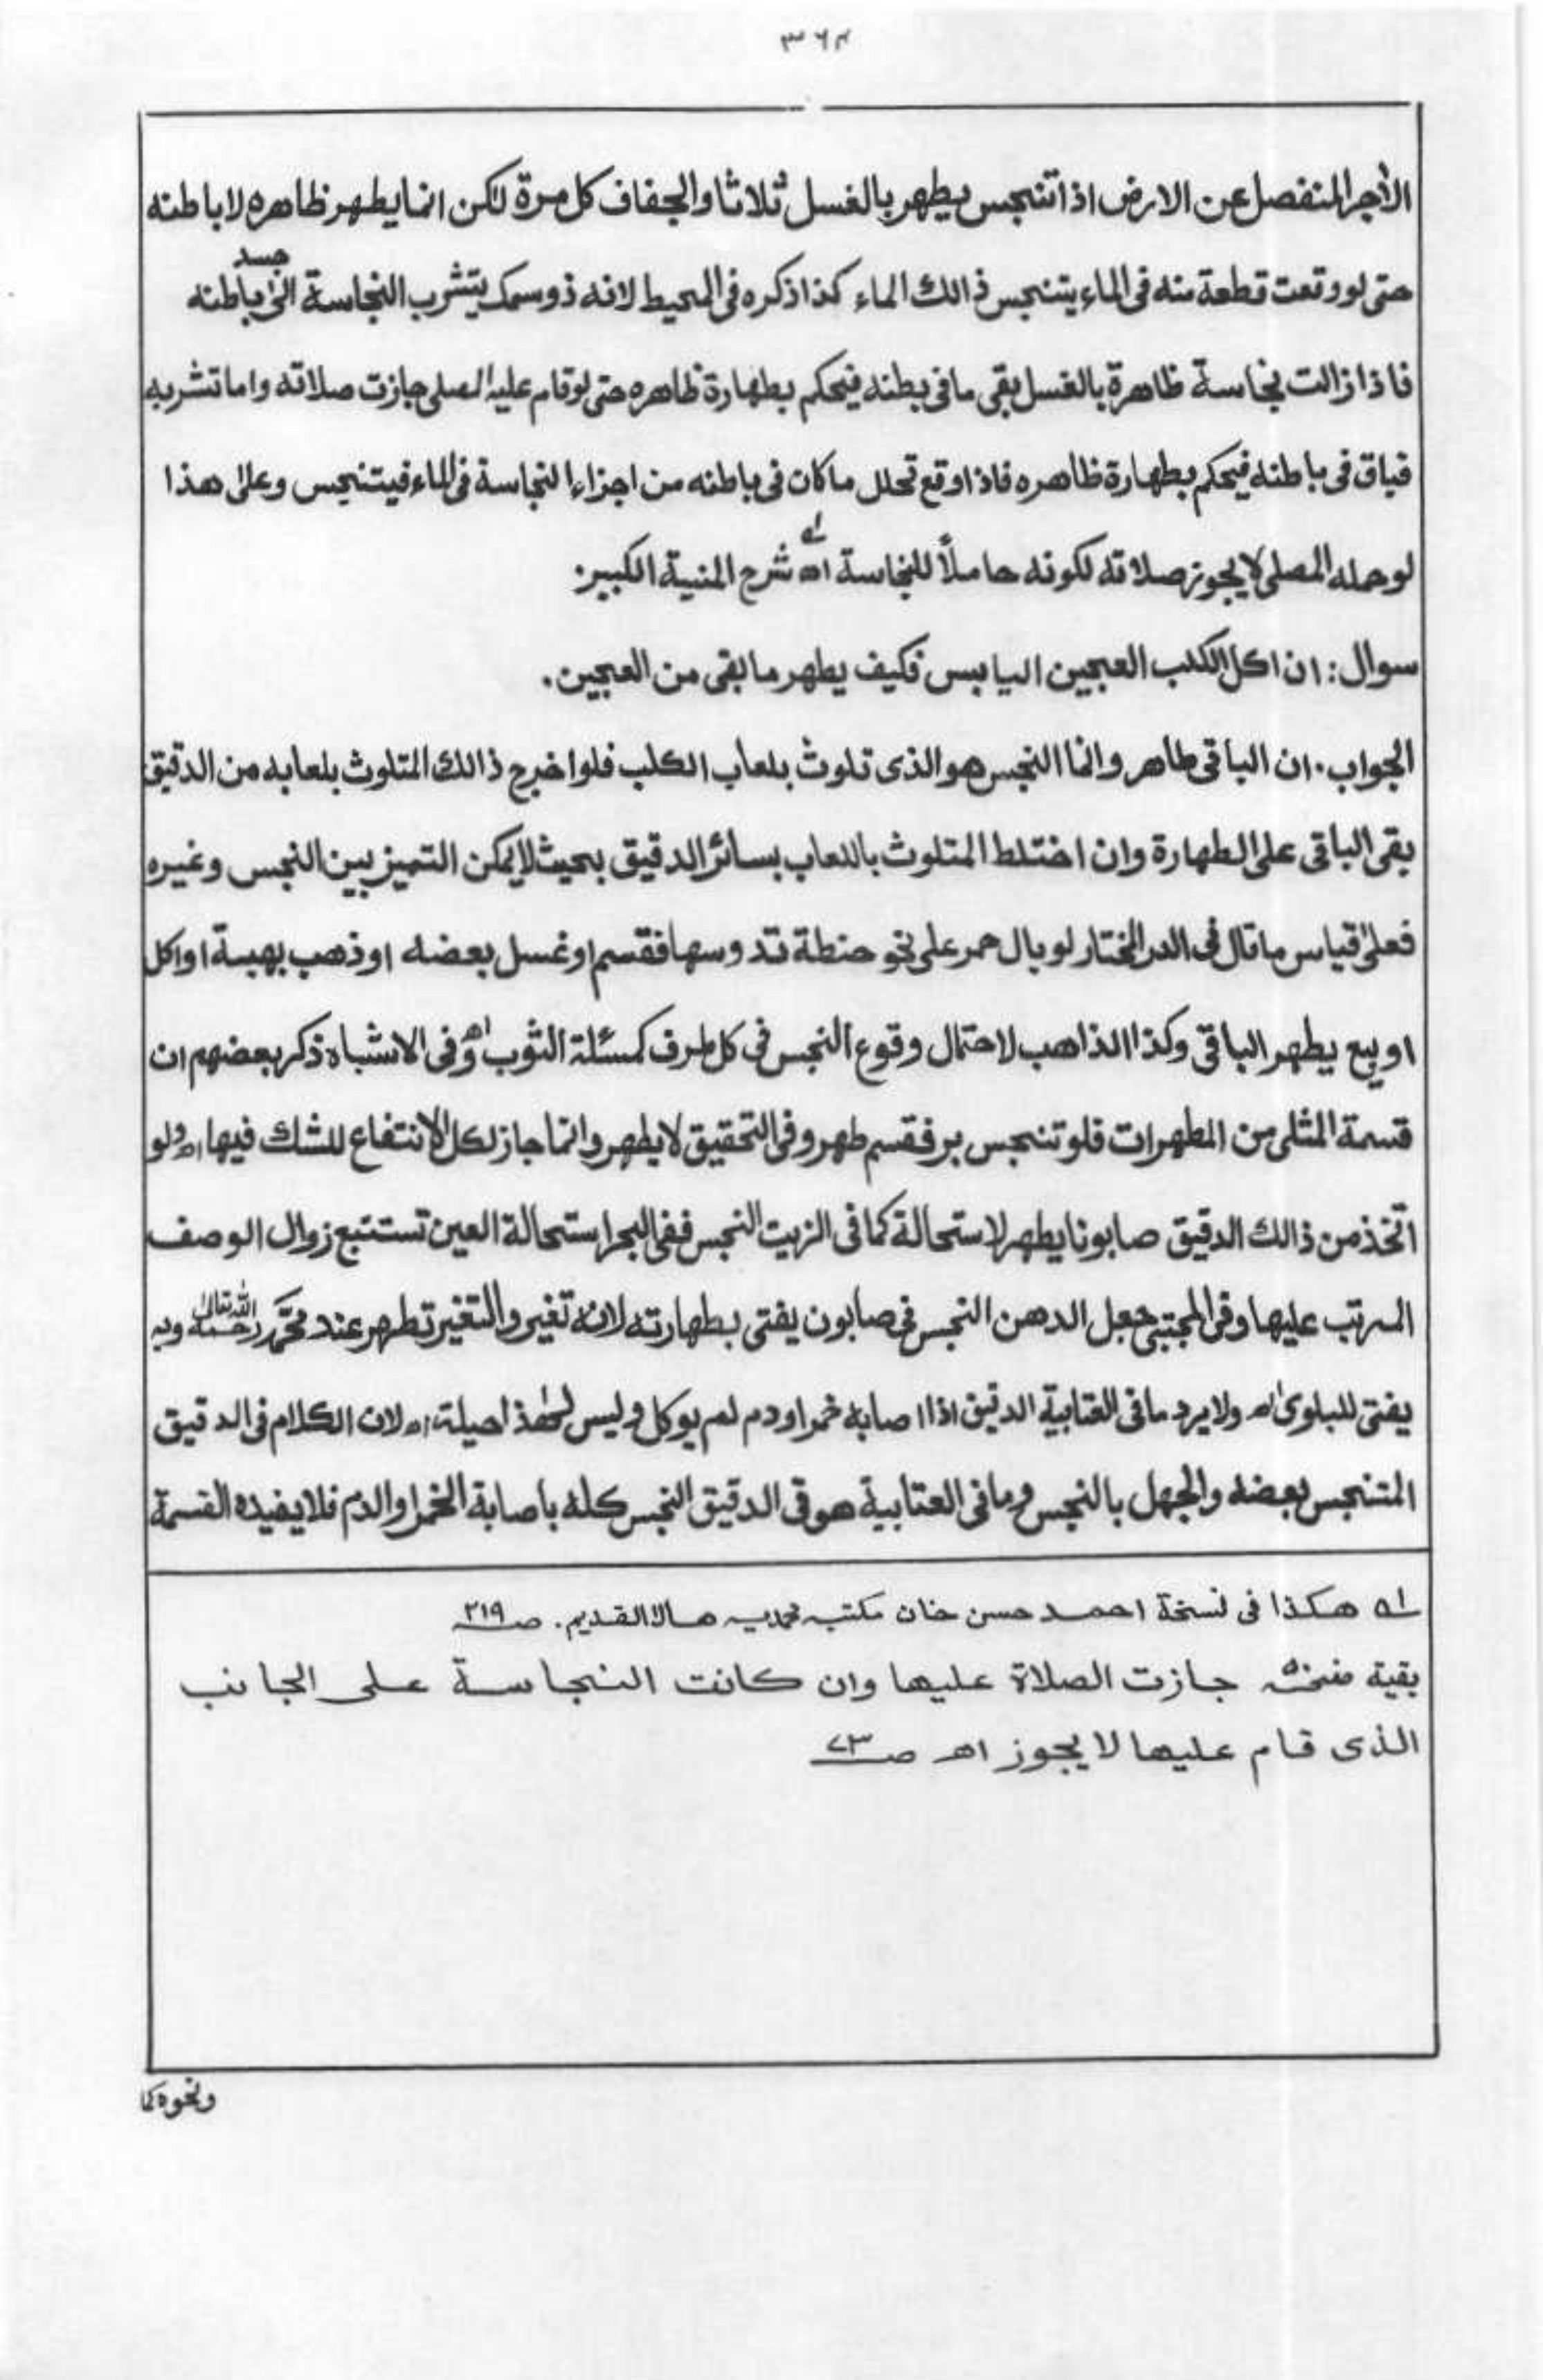 ٣٦٤
الأجر المنفصل عن الارض اذا تنجس يطهر بالغسل ثلاثا والجفاف كل مرة لكن انما يطهر ظاهره لا باطنه
حتى لو وقعت قطعة منه فى الماء يتنجس ذالك الماء كذا ذكره فى المحيط لانه ذو سمك يتشرب النجاسة الىٰ باطنه
فاذا زالت نجاسة ظاهرة بالغسل بقى ما فى بطنه فيحكم بطهارة ظاهره حتى لو قام عليه المصلى جازت صلاته واما تشربه
فباق فى باطنه فيحكم بطهارة ظاهره فاذا وقع تحلل ما كان فى باطنه من اجزاء النجاسة فى الماء فيتنجس وعلى هذا
لو حمله المصلى لا يجوز صلاته لكونه حاملاً للنجاسة اه‍ شرح المنية الكبير.
سوال: ان اكل الكلب العجين اليابس فكيف يطهر ما بقى من العجين.
الجواب. ان الباقى طاهر وانما النجس هو الذى تلوث بلعاب الكلب فلو اخرج ذالك المتلوث بلعابه من الدقيق
بقى الباقى على الطهارة وان اختلط المتلوث باللعاب بسائر الدقيق بحيث لا يمكن التميز بين النجس وغيره
فعلىٰ قياس ما قال فى الدر المختار لو بال حمر على نحو حنطة تدوسها فقسم او غسل بعضه او ذهب بهبة او اكل
او بيع يطهر الباقى وكذا الذاهب لاحتمال وقوع النجس فى كل طرف كمسئلة الثوب اه‍ وفى الاشباه ذكر بعضهم ان
قسمة المثلى من المطهرات فلو تنجس بر فقسم طهر وفى التحقيق لا يطهر وانما جاز لكل الانتفاع للشك فيها اه‍ ولو
اتخذ من ذالك الدقيق صابونا يطهر لاستحالة كما فى الزيت النجس ففى البحر استحالة العين تستتبع زوال الوصف
المرتب عليها وفى المجتبىٰ جعل الدهن النجس فى صابون يفتى بطهارته لانه تغير والتغير تطهر عند محمد رحمه الله تعالىٰ وبه
يفتى للبلوىٰ اه‍ ولا يرد ما فى العتابية الدقيق اذا اصابه خمر او دم لم يوكل وليس لهٰذا حيلة اه‍ لان الكلام فى الدقيق
المتنجس بعضه والجهل بالنجس وما فى العتابية هو فى الدقيق النجس كله باصابة الخمر او الدم فلا يفيده القسمة
له هكذا فى نسخة احمد حسن خان مكتبه محمديه هالا القديم. صـ ٢١٩
بقية جازت الصلاة عليها وان كانت النجاسة على الجانب
الذى قام عليها لا يجوز اهـ صـ ٧٣
ونحوه كما